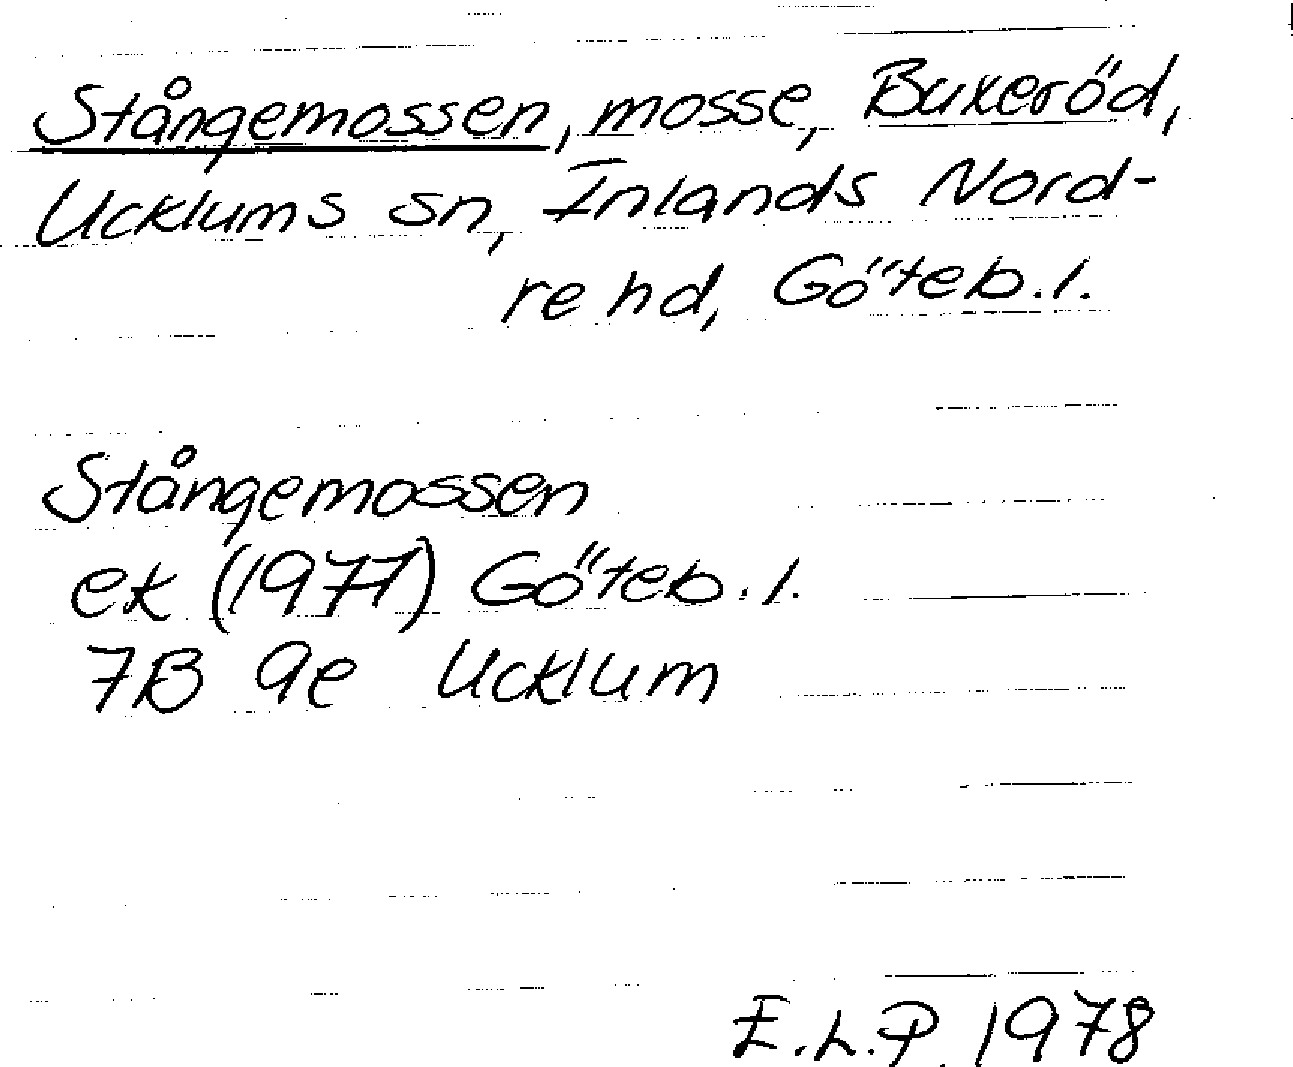 Stångemossen, mosse, Buxeröd,
Ucklums sn, Inlands Nord-
re hd, Göteb.l.
Stångemossen
ek (1977) Göteb.l.
7B 9e Ucklum
E.L.P. 1978